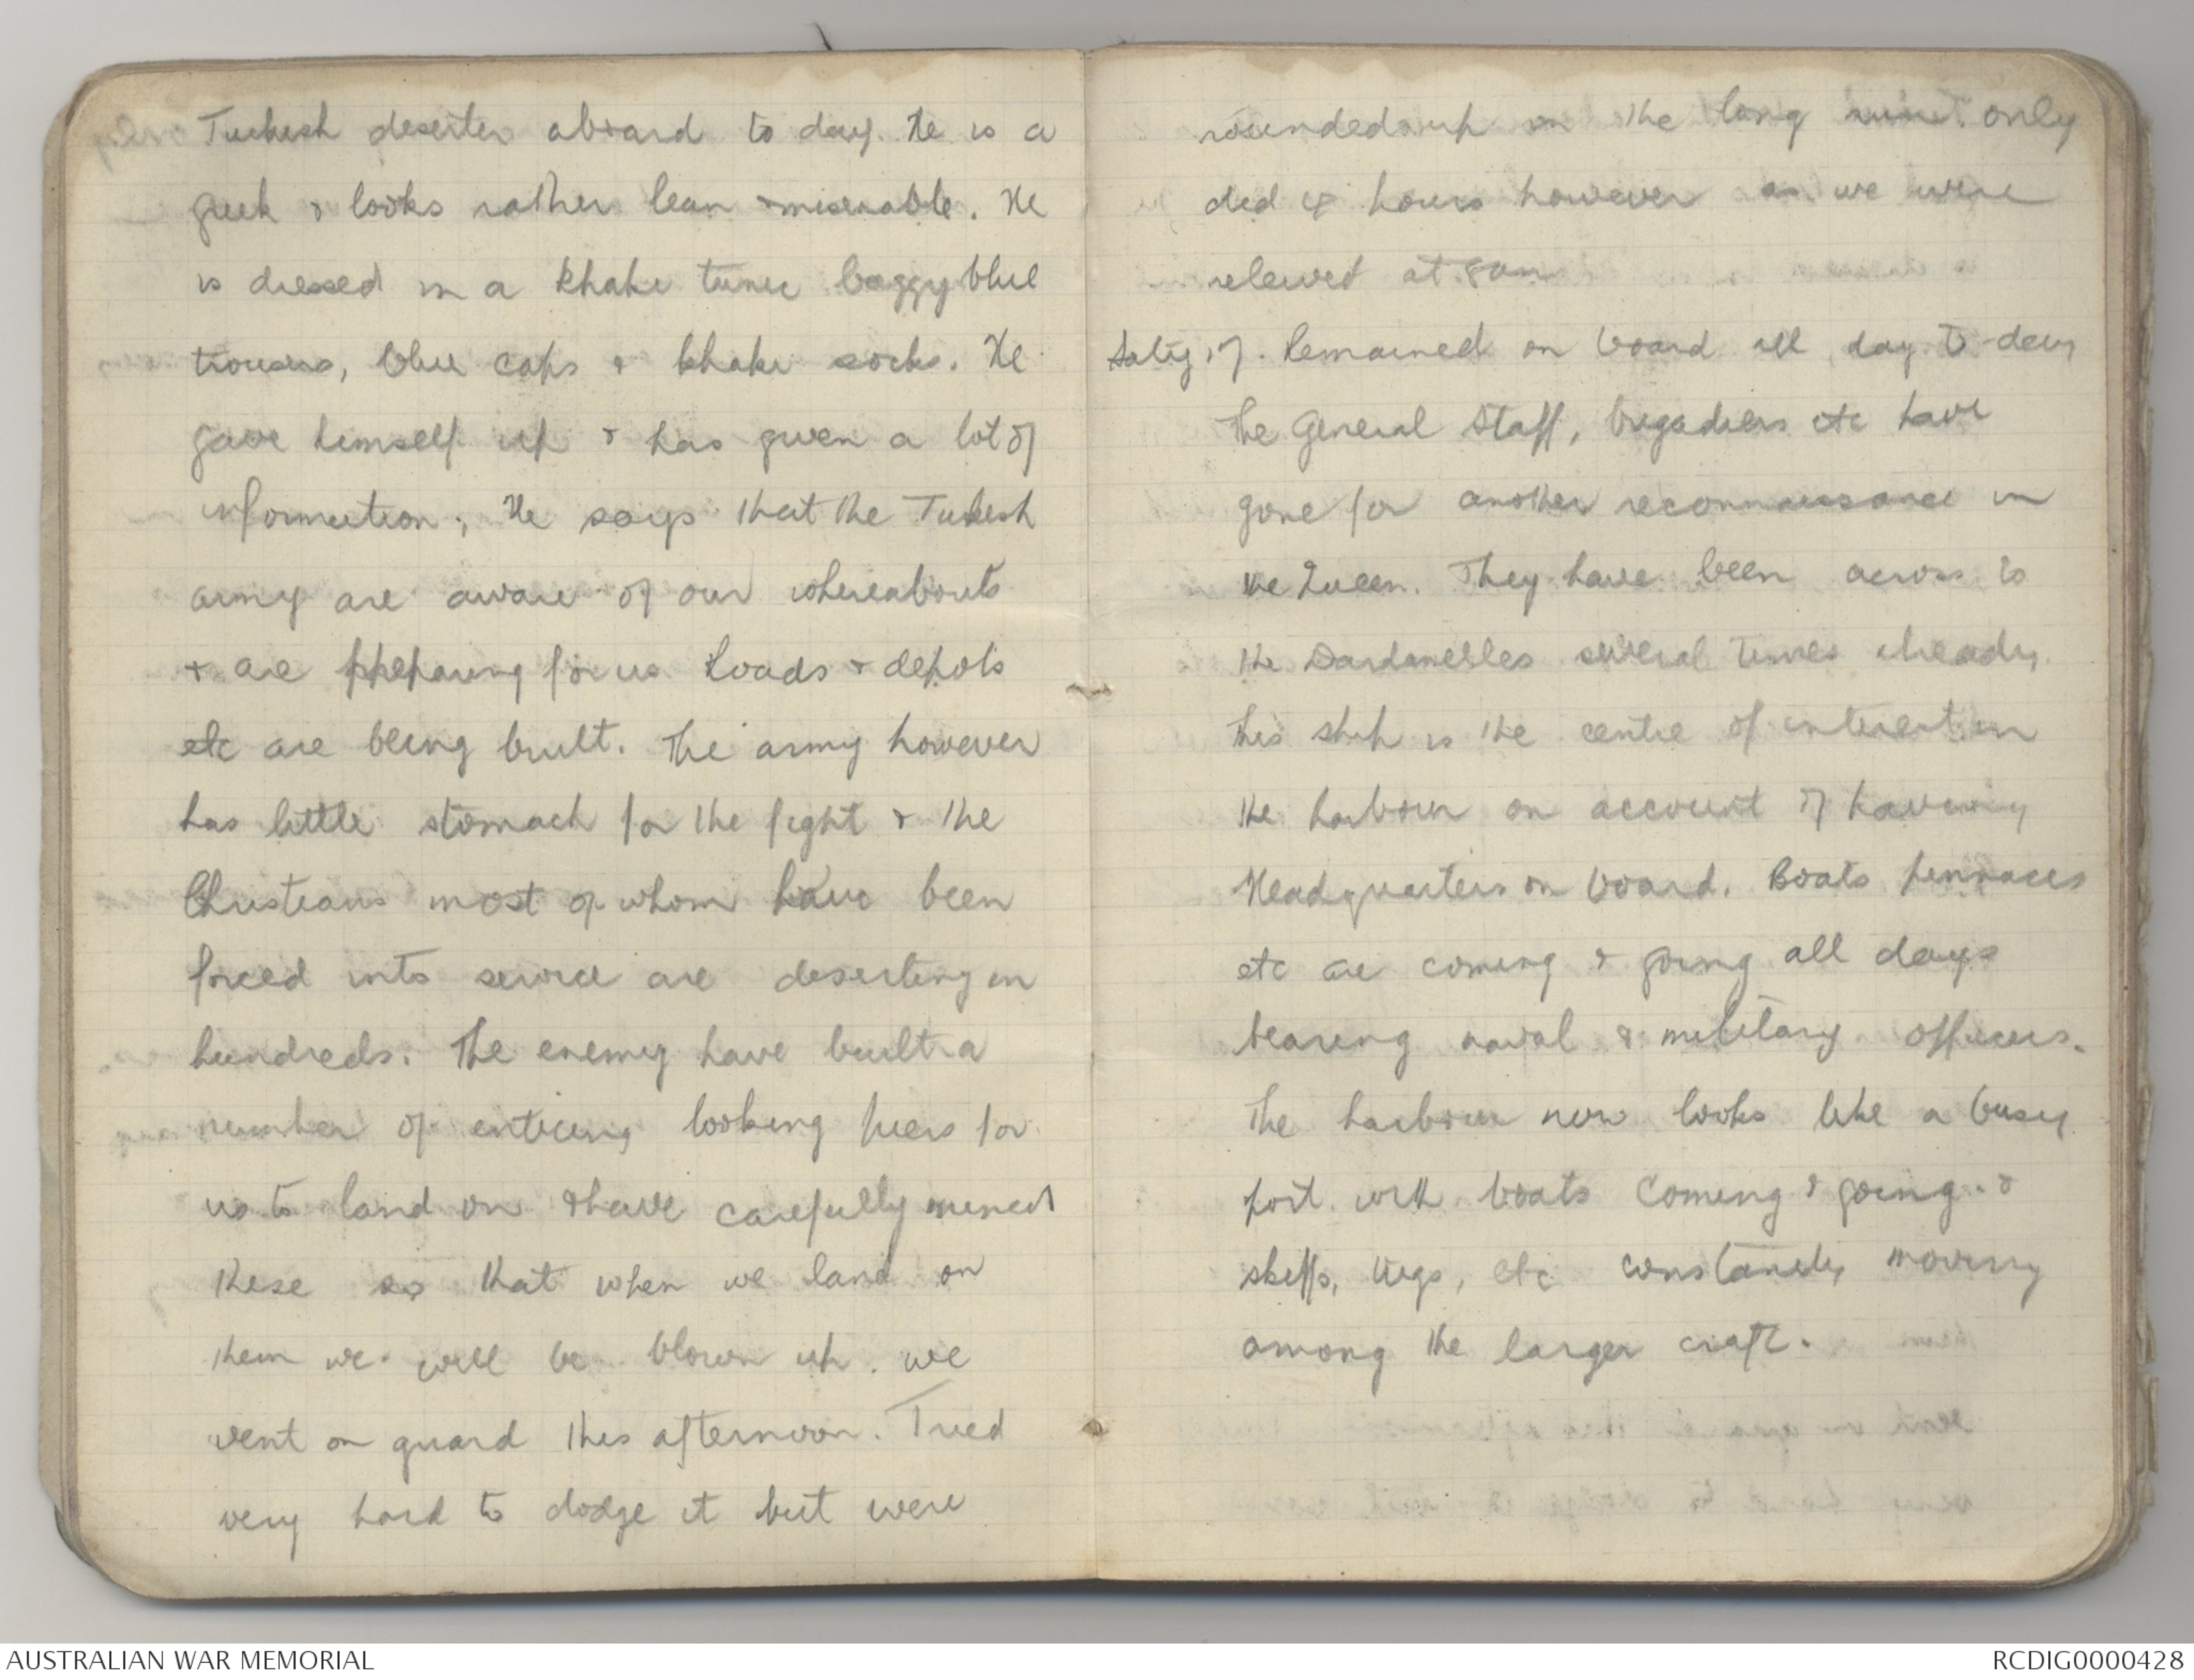 Turkish deserter aboard to day. He is a
greek & looks rather lean & miserable. He
is dressed in a khaki tunic baggy blue
trousers, blue caps & khaki socks. He
gave himself up & has given a lot of
information; He says that the Turkish
army are aware of our whereabouts
& are preparing for us. Roads & depots
etc are being built. The army however
has little stomach for the fight & the
Christians most of whom have been
forced into service are deserting in
hundreds. The enemy have built a
number of enticing looking piers for
us to land on & have carefully mined
these so that when we land on
them we will be blown up. we
went on guard this afternoon. Tried
very hard to dodge it but were
rounded up in the long run. only
did 4 hours however as we were
relieved at 8am
Satdy 17. Remained on board all day to-day
The General Staff, brigadiers etc have
gone for another reconnaissance in
the Queen. They have been across to
the Dardanelles several times already.
This ship is the centre of interest in
the harbour on account of having
Headquarters on board. Boats pinnaces
etc are coming & going all days
bearing naval & military officers.
The harbour now looks like a busy
port with boats coming & going &
skiffs, tugs, etc constantly moving
among the larger craft.
AUSTRALIAN WAR MEMORIAL
RCDIG0000428